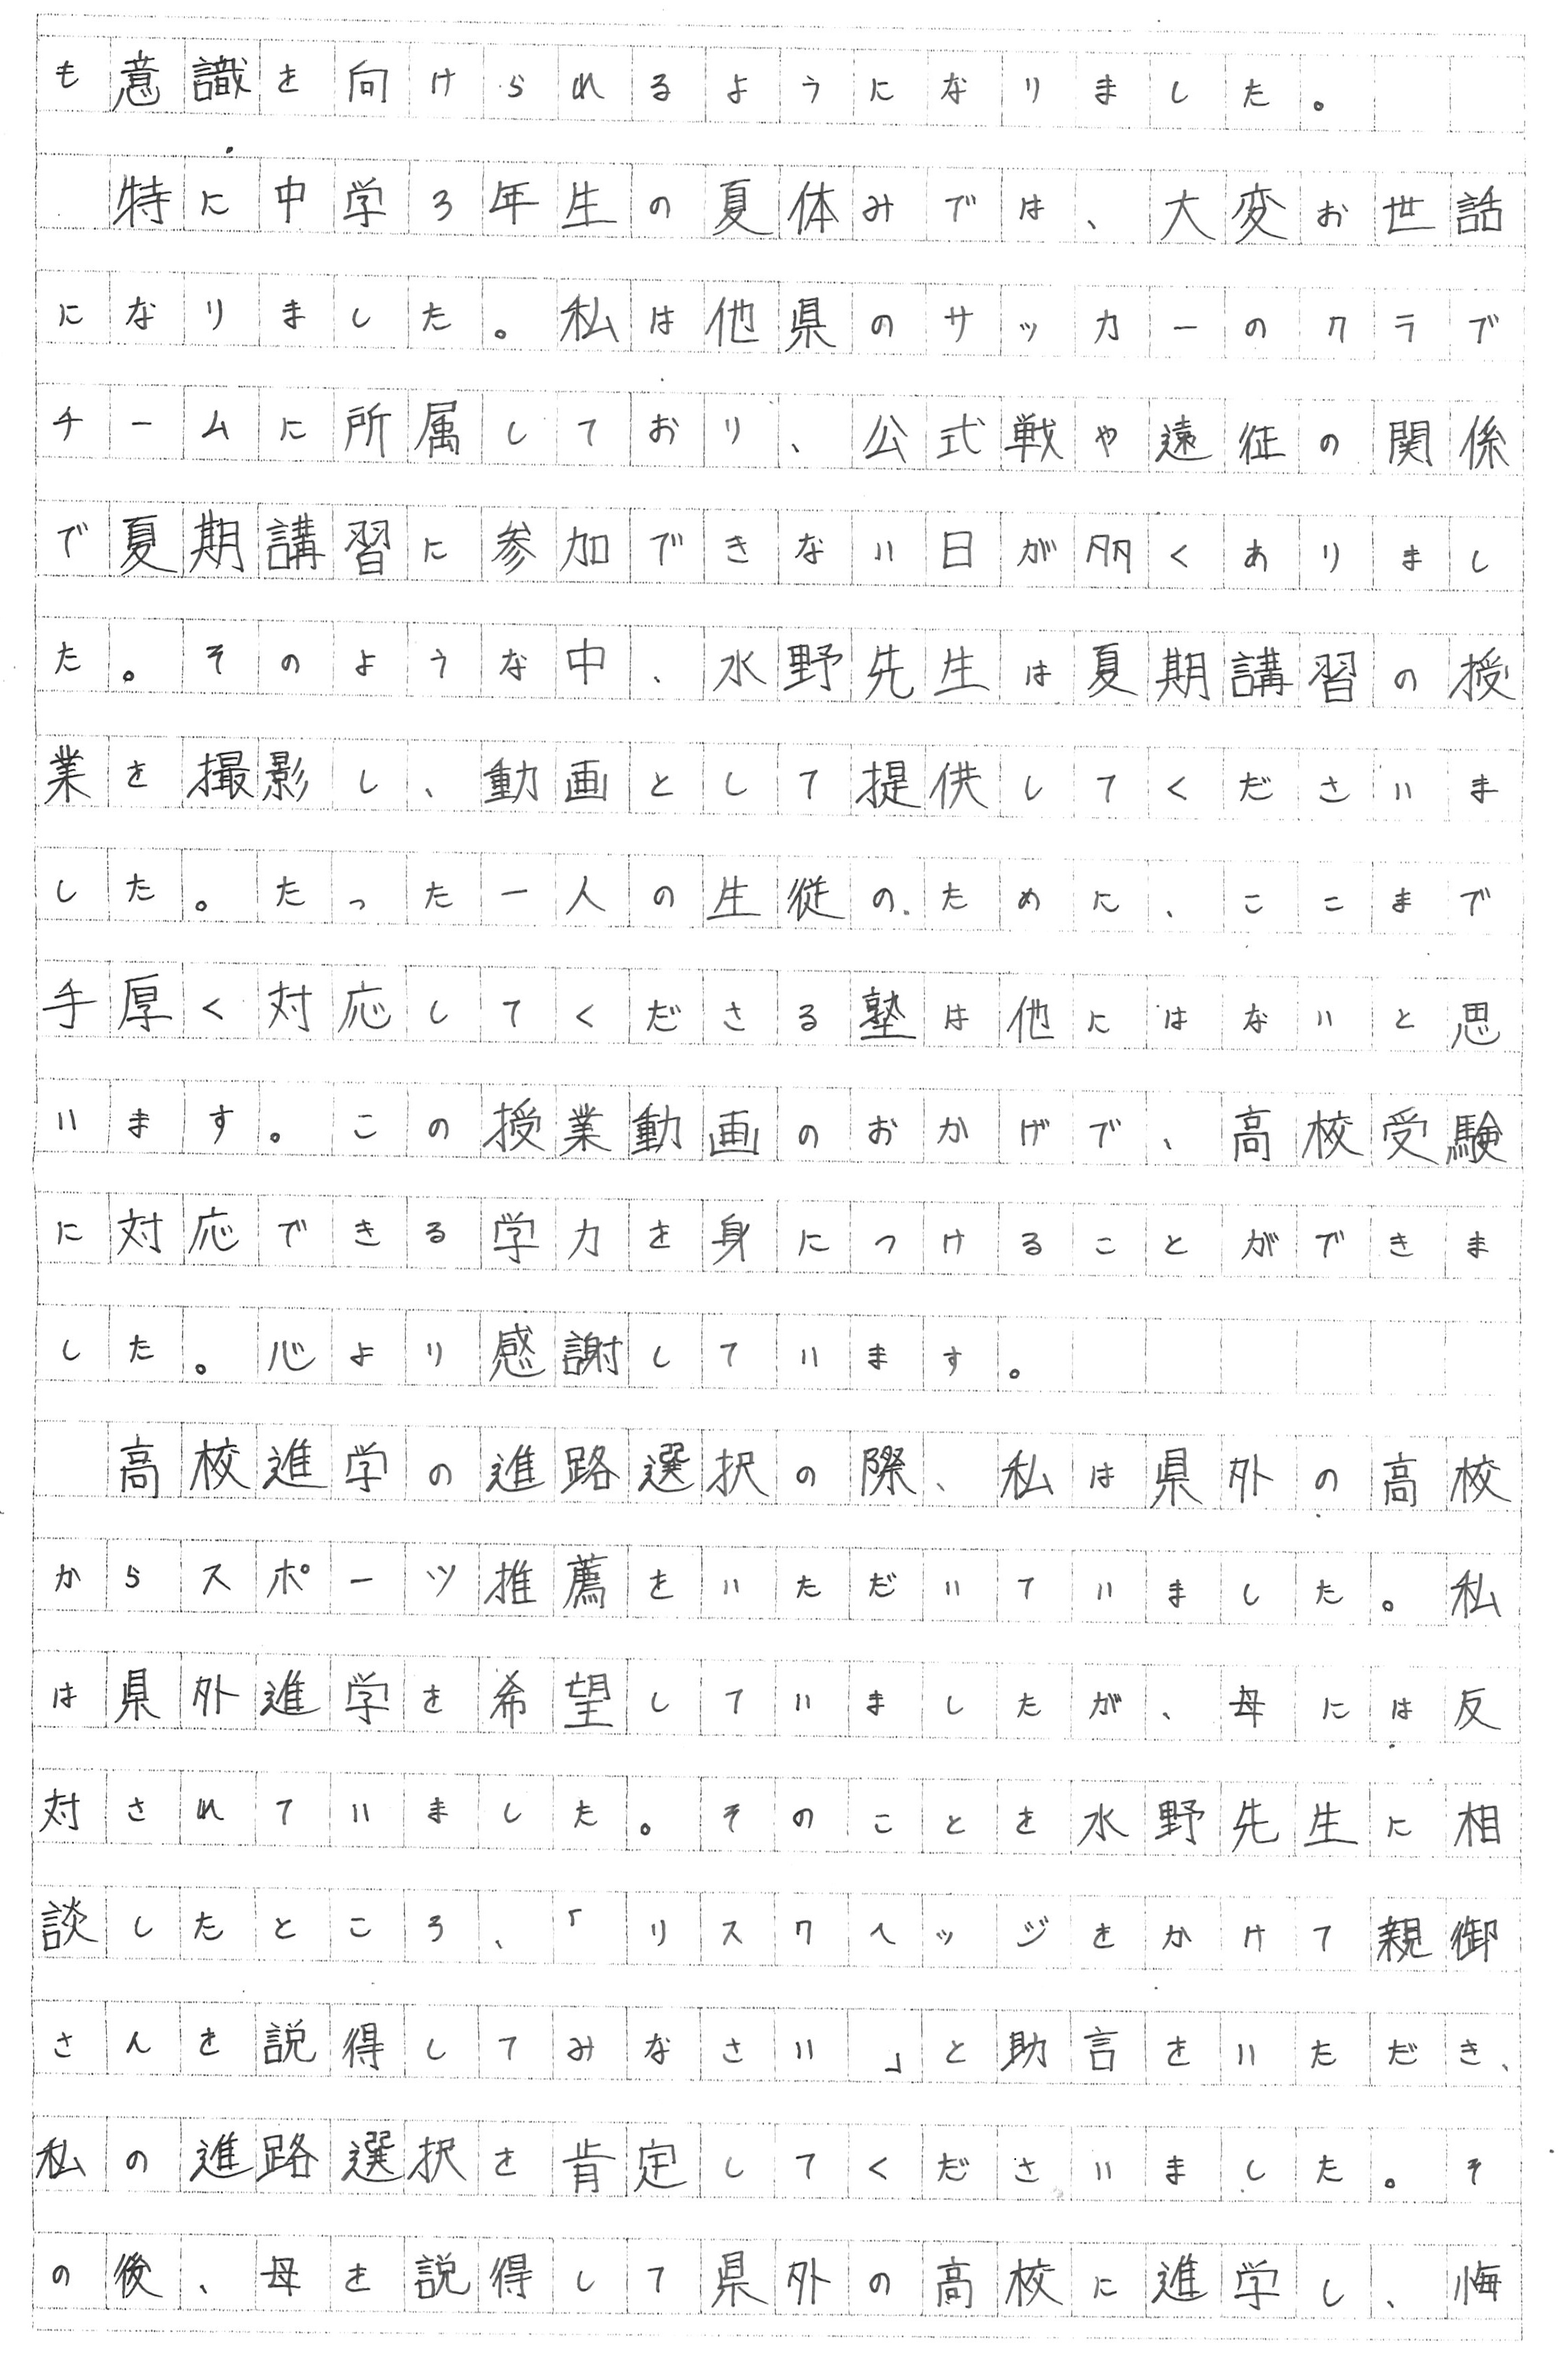 も意識を向けられるようになりました。
　特に中学3年生の夏休みでは、大変お世話
になりました。私は他県のサッカーのクラブ
チームに所属しており、公式戦や遠征の関係
で夏期講習に参加できない日が多くありまし
た。そのような中、水野先生は夏期講習の授
業を撮影し、動画として提供してくださいま
した。たった一人の生徒のために、ここまで
手厚く対応してくださる塾は他にはないと思
います。この授業動画のおかげで、高校受験
に対応できる学力を身につけることができま
した。心より感謝しています。
　高校進学の進路選択の際、私は県外の高校
からスポーツ推薦をいただいていました。私
は県外進学を希望していましたが、母には反
対されていました。そのことを水野先生に相
談したところ、「リスクヘッジをかけて親御
さんを説得してみなさい」と助言をいただき、
私の進路選択を肯定してくださいました。そ
の後、母を説得して県外の高校に進学し、悔